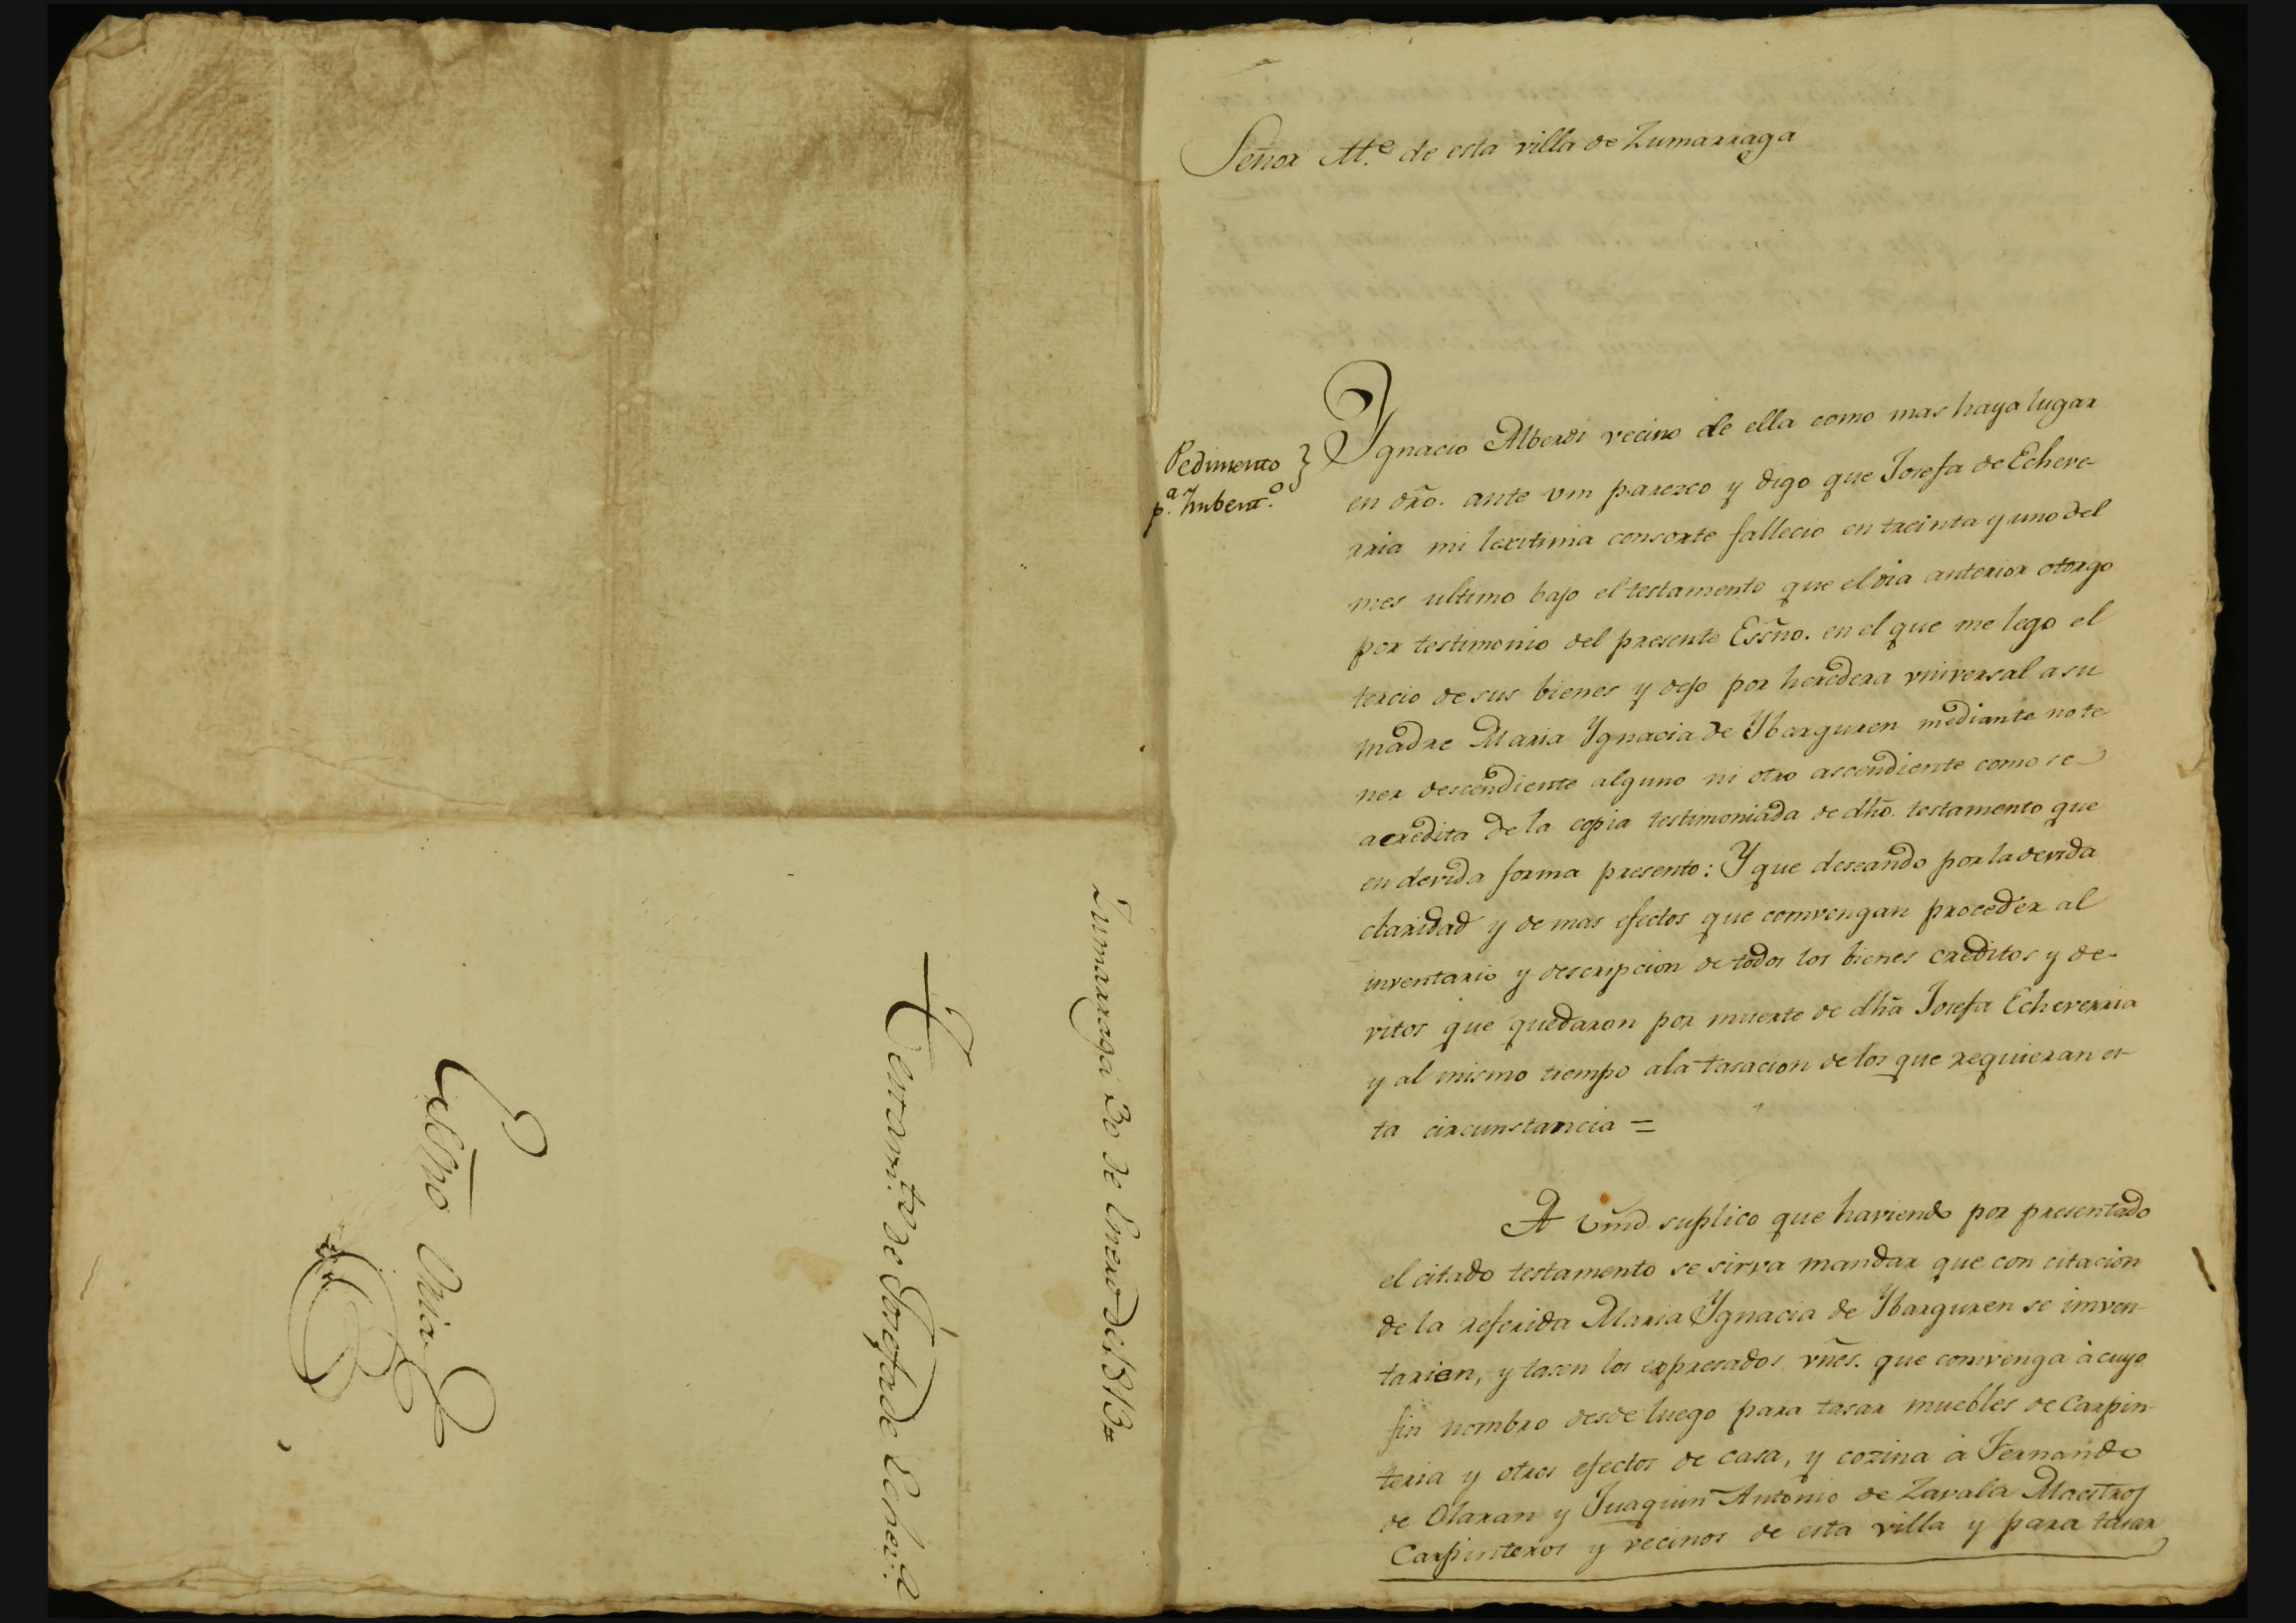 Zumarraga 30 de Enero de 1813
Testam.to de Josefa de Echev.a
Essno
Señor Alc.e de esta villa de Zumarraga
Pedimento
p.a Inbent.o
Ygnacio Alberdi vecino de ella como mas haya lugar
en dr̃o. ante vm parezco y digo que Josefa de Echeve-
rria mi lexitima consorte fallecio en treinta y uno del
mes ultimo bajo el testamento que el dia anterior otorgo
por testimonio del presente Essño. en el que me lego el
tercio de sus bienes y dejo por heredera vniversal a su
madre Maria Ygnacia de Ybarguren mediante no te
ner descendiente alguno ni otro ascendiente como se
acredita de la copia testimoniada de dhõ. testamento que
en devida forma presento: Y que deseando por la devida
claridad y de mas efectos que comvengan proceder al
inventario y descripcion de todos los bienes creditos y de-
vitos que quedaron por muerte de dhã Josefa Echeverria
y al mismo tiempo a la tasacion de los que requieran es-
ta circunstancia =
A vm̃d. suplico que haviendo por presentado
el citado testamento se sirva mandar que con citacion
de la referida Maria Ygnacia de Ybarguren se imven-
tarien, y tasen los expresados vñes. que comvenga à cuyo
fin nombro desde luego para tasar muebles de Carpin-
teria y otros efectos de casa, y cozina à Fernando
de Olaran y Juaquin Antonio de Zavala Maestros
Carpinteros y vecinos de esta villa y para tasar